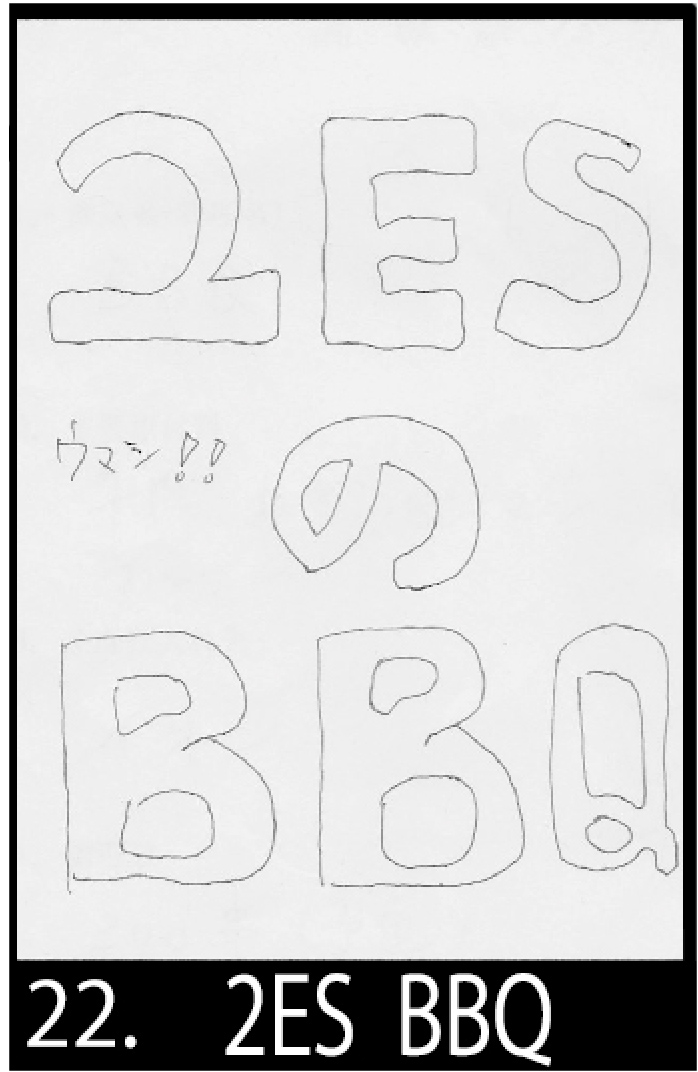 2ES
ウマシ!!
の
BBQ
22. 2ES BBQ